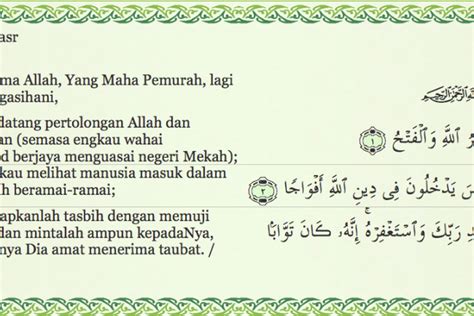 asr
ma Allah, Yang Maha Pemurah, lagi
gasihani,
datang pertolongan Allah dan
an (semasa engkau wahai
d berjaya menguasai negeri Mekah);
kau melihat manusia masuk dalam
h beramai-ramai;
apkanlah tasbih dengan memuji
dan mintalah ampun kepadaNya,
nya Dia amat menerima taubat. /
ٱلرَّحْمَٰنِ ٱلرَّحِيمِ
رُ ٱللَّهِ وَٱلْفَتْحُ ١
سَ يَدْخُلُونَ فِى دِينِ ٱللَّهِ أَفْوَاجًا ٢
دِ رَبِّكَ وَٱسْتَغْفِرْهُ ۚ إِنَّهُۥ كَانَ تَوَّابًۢا